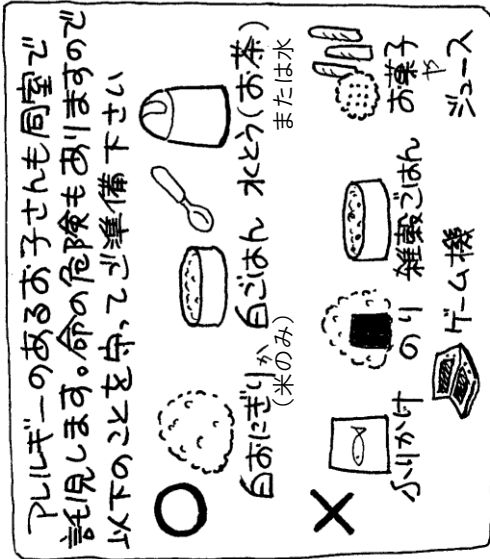 アレルギーのあるお子さんも同室で
託児します。命の危険もありますので
以下のことを守ってご準備下さい
○
白おにぎりか
(米のみ)
白ごはん
水とう(お茶)
または水
×
ふりかけ
のり
雑穀ごはん
お菓子
や
ジュース
ゲーム機